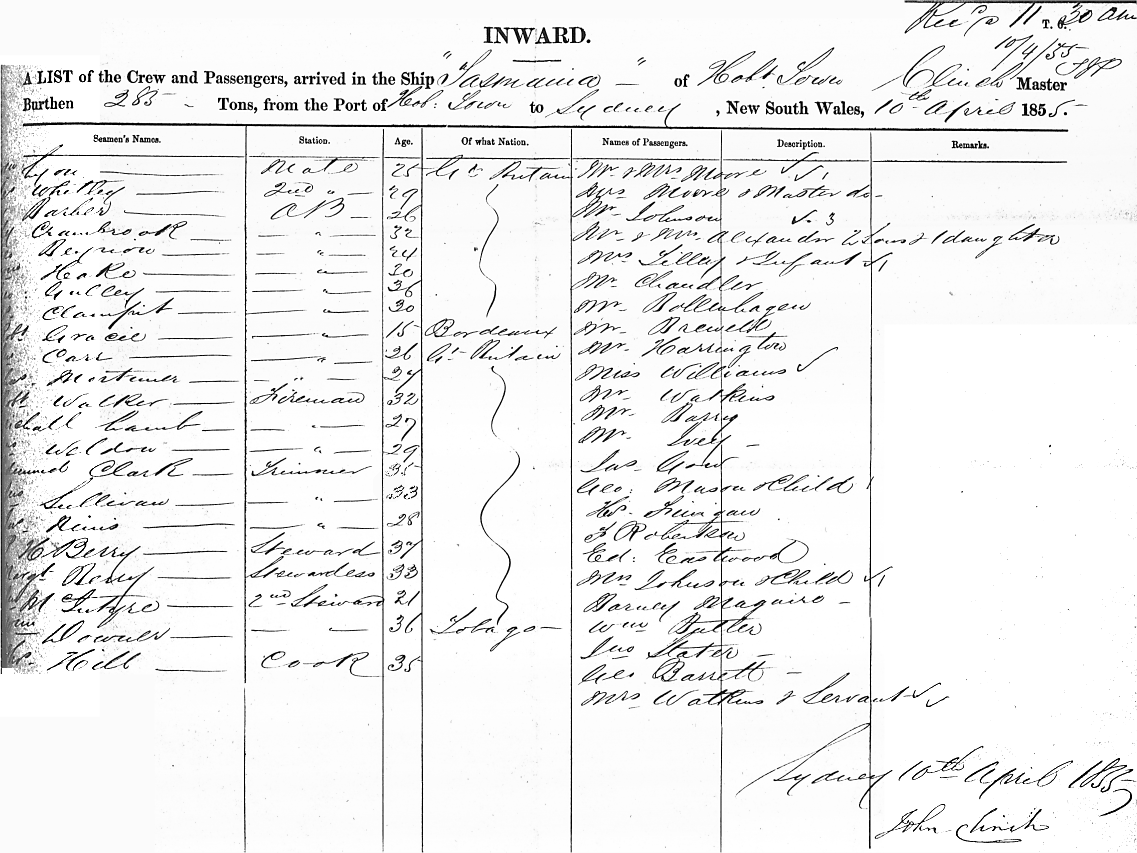 Rec'd 11 T. O. 30 am
10/4/55
INWARD.
A LIST of the Crew and Passengers, arrived in the Ship "Tasmania" of Hobt Town Clinch Master
Burthen 285 Tons, from the Port of Hob: Town to Sydney, New South Wales, 10th April 1855.
Seamen's Names. Station. Age. Of what Nation. Names of Passengers. Description. Remarks.
Lyon Mate 25 Gt Britain Mr & Mrs Moore
Whitby 2nd " 29 Mrs Moore & Master do
Barber AB 26 Mr Johnson 3
Crambrook " 32 Mr & Mrs Alexander 2 Sons & 1 daughter
" 24 Mrs Tilley & Infant 1
Hake " 30 Mr Chandler
Gulley " 36 Mr Bollenhagen
" 30 Mr
Gracie " 15 Bordeaux Mr. Harrington
Carr " 26 Gt Britain Miss Williams
Mortimer " 27 Mr Watkins
Walker Fireman 32 Mr Barry
Lamb " 27 Mr Ivey
Weldon " 29 Jas Gow
Clark Trimmer 35 Geo: Mason & Child 1
Sullivan " 33 Hy Finigan
" 28 F Robertson
H Berry Steward 37 Ed: Eastwood
Berry Stewardess 33 Mrs Johnson & Child 1
McIntyre 2nd Steward 21 Barney Maguire
Downer " 36 Tobago Wm Butler
Hill Cook 35 Jno Slater
Geo Barrett
Mrs Watkins & Servant
Sydney 10th April 1855
John Clinch